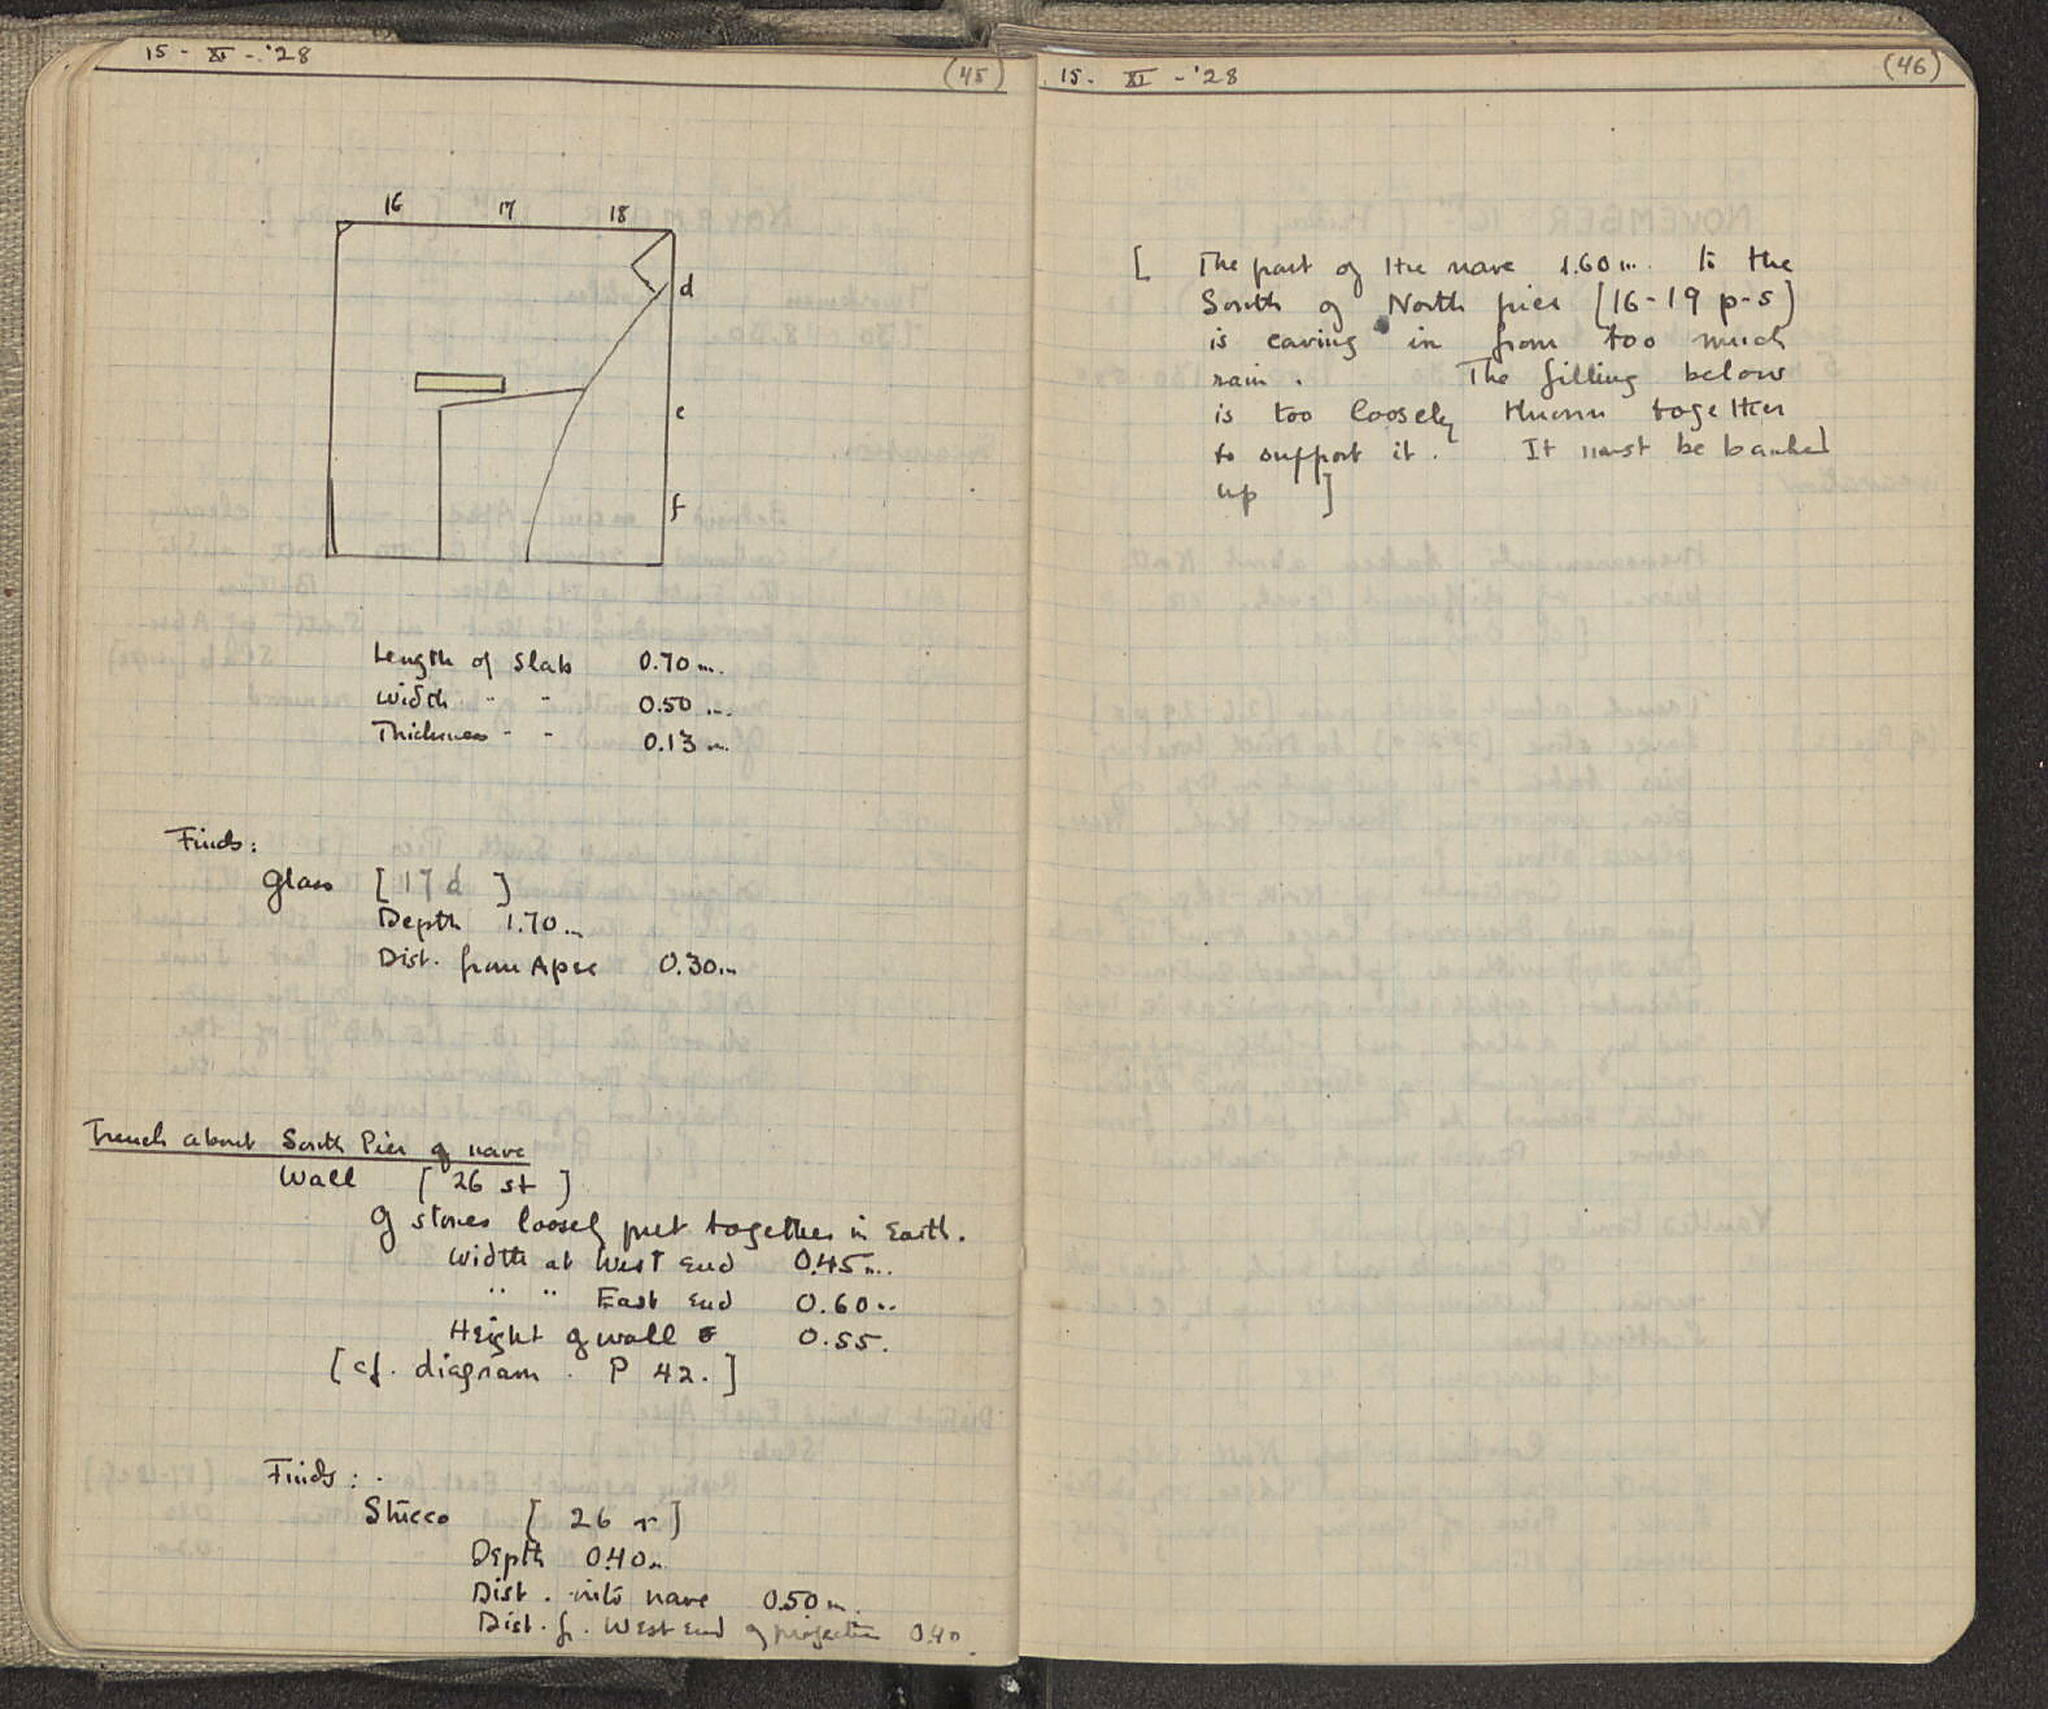 15 - XI - '28
(45)
16 17 18
d
e
f
Length of Slab 0.70 m.
Width " " 0.50 m.
Thickness " " 0.13 m.
Finds:
Glass [17 d ]
Depth 1.70 m
Dist. from Apse 0.30 m
Trench about South Pier of nave
Wall [ 26 st ]
of stones loosely put together in Earth.
Width at West End 0.45 m.
" " East End 0.60 m
Height of wall 0.55.
[cf. diagram . P 42.]
Finds :
Stucco [ 26 r ]
Depth 0.40 m
Dist. into nave 0.50 m.
Dist. fr. West End of projection 0.40
15 - XI - '28
(46)
[ The part of the nave 1.60 m. to the
South of North pier [16-19 p-s]
is caving in from too much
rain . The filling below
is too loosely thrown together
to support it . It must be banked
up ]